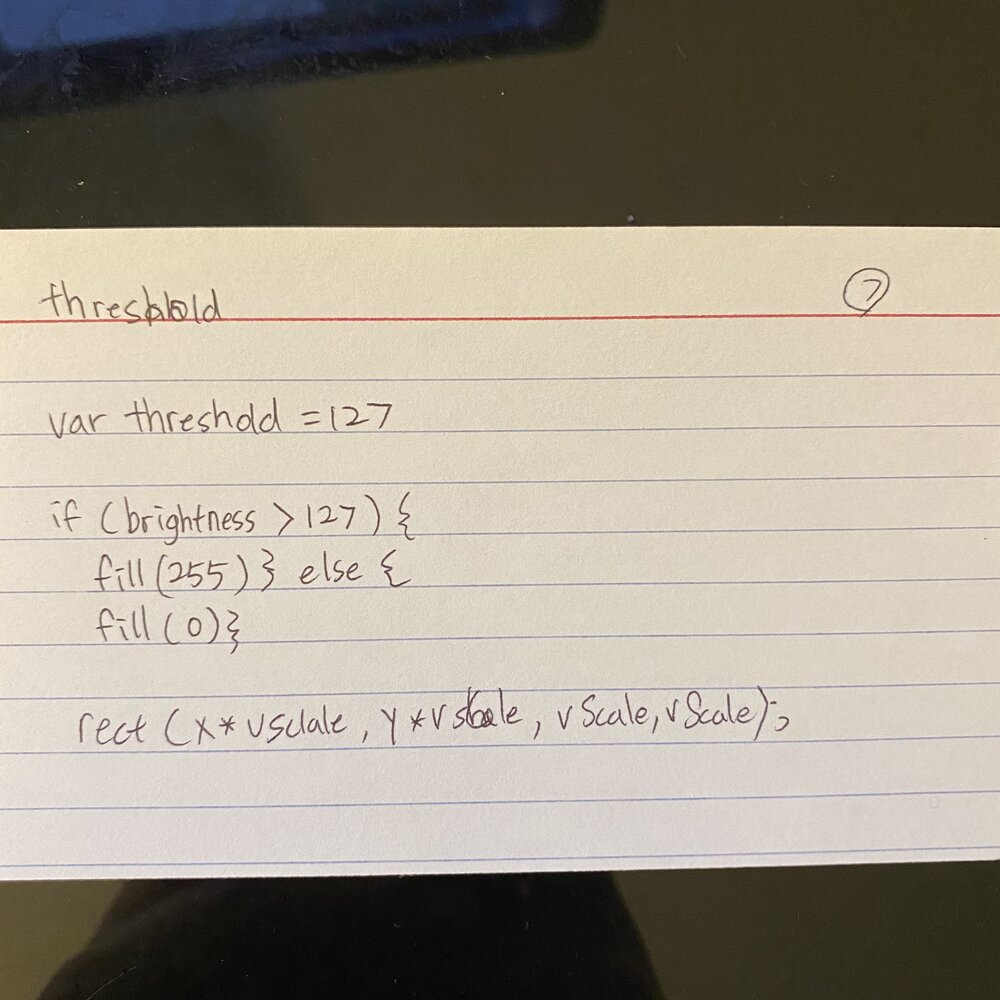 threshold
7
var threshold = 127
if (brightness > 127) {
fill (255) } else {
fill (0) }
rect (x * vsclale, y * vscale, vScale, vScale);